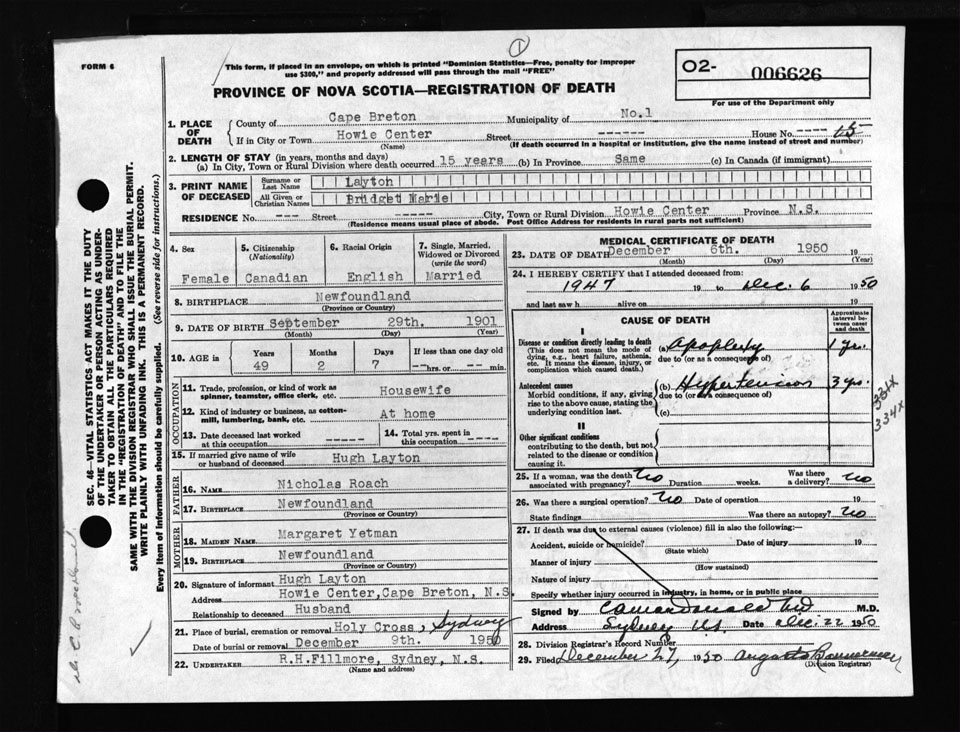 FORM 6
1
This form, if placed in an envelope, on which is printed "Dominion Statistics—Free, penalty for improper
use $300," and properly addressed will pass through the mail "FREE"
PROVINCE OF NOVA SCOTIA—REGISTRATION OF DEATH
O2- 006626
For use of the Department only
1. PLACE OF DEATH
County of Cape Breton Municipality of No.1
If in City or Town Howie Center Street ------ House No. ----
(Name) (If death occurred in a hospital or institution, give the name instead of street and number)
2. LENGTH OF STAY (in years, months and days)
(a) In City, Town or Rural Division where death occurred 15 years (b) In Province Same (c) In Canada (if immigrant)
3. PRINT NAME OF DECEASED
Surname or Last Name Layton
All Given or Christian Names Bridget Marie
RESIDENCE No. --- Street ----- City, Town or Rural Division Howie Center Province N.S.
(Residence means usual place of abode. Post Office Address for residents in rural parts not sufficient)
4. Sex Female
5. Citizenship (Nationality) Canadian
6. Racial Origin English
7. Single, Married, Widowed or Divorced (write the word) Married
8. BIRTHPLACE Newfoundland
(Province or Country)
9. DATE OF BIRTH September 29th. 1901
(Month) (Day) (Year)
10. AGE in Years 49 Months 2 Days 7 If less than one day old --hrs. or -- min.
OCCUPATION
11. Trade, profession, or kind of work as spinner, teamster, office clerk, etc. Housewife
12. Kind of industry or business, as cotton-mill, lumbering, bank, etc. At home
13. Date deceased last worked at this occupation -----
14. Total yrs. spent in this occupation -----
15. If married give name of wife or husband of deceased Hugh Layton
FATHER
16. NAME Nicholas Roach
17. BIRTHPLACE Newfoundland
(Province or Country)
MOTHER
18. MAIDEN NAME Margaret Yetman
19. BIRTHPLACE Newfoundland
(Province or Country)
20. Signature of informant Hugh Layton
Address Howie Center,Cape Breton, N.S.
Relationship to deceased Husband
21. Place of burial, cremation or removal Holy Cross, Sydney
Date of burial or removal December 9th. 1950
22. UNDERTAKER R.H.Fillmore, Sydney, N.S.
(Name and address)
MEDICAL CERTIFICATE OF DEATH
23. DATE OF DEATH December 6th. 1950 19
(Month) (Day) (Year)
24. I HEREBY CERTIFY that I attended deceased from:
1947 19 to Dec. 6 1950
and last saw h alive on 19
CAUSE OF DEATH
Approximate interval between onset and death
I
Disease or condition directly leading to death
(This does not mean the mode of dying, e.g., heart failure, asthenia, etc. It means the disease, injury, or complication which caused death.)
(a) Apoplexy 1 yr.
due to (or as a consequence of)
Antecedent causes
Morbid conditions, if any, giving rise to the above cause, stating the underlying condition last.
(b) Hypertension 3 yrs.
due to (or as a consequence of)
(c)
334X
II
Other significant conditions
contributing to the death, but not related to the disease or condition causing it.
25. If a woman, was the death associated with pregnancy? No Duration weeks. Was there a delivery? No
26. Was there a surgical operation? No Date of operation 19
State findings Was there an autopsy? No
27. If death was due to external causes (violence) fill in also the following:—
Accident, suicide or homicide? Date of injury 19
(State which)
Manner of injury
(How sustained)
Nature of injury
Specify whether injury occurred in industry, in home, or in public place
Signed by M.D.
Address Sydney N.S. Date Dec. 22 1950
28. Division Registrar's Record Number
29. Filed December 27, 1950
(Division Registrar)
SEC. 46—VITAL STATISTICS ACT MAKES IT THE DUTY
OF THE UNDERTAKER OR PERSON ACTING AS UNDER-
TAKER TO OBTAIN ALL THE PARTICULARS REQUIRED
IN THE "REGISTRATION OF DEATH" AND TO FILE THE
SAME WITH THE DIVISION REGISTRAR WHO SHALL ISSUE THE BURIAL PERMIT.
WRITE PLAINLY WITH UNFADING INK. THIS IS A PERMANENT RECORD.
Every item of Information should be carefully supplied. (See reverse side for instructions.)